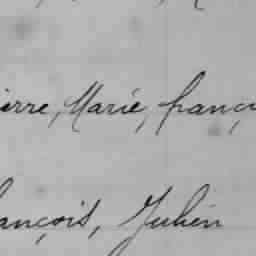 ierre, Marie, franç
ançois, Julien